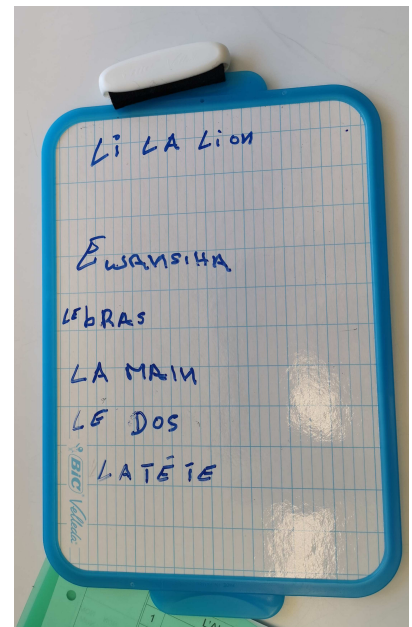 Li LA Lion
EWANSIHA
LE bRAS
LA MAIN
LE DOS
LATÉTE
BIC Velleda
1 L'A